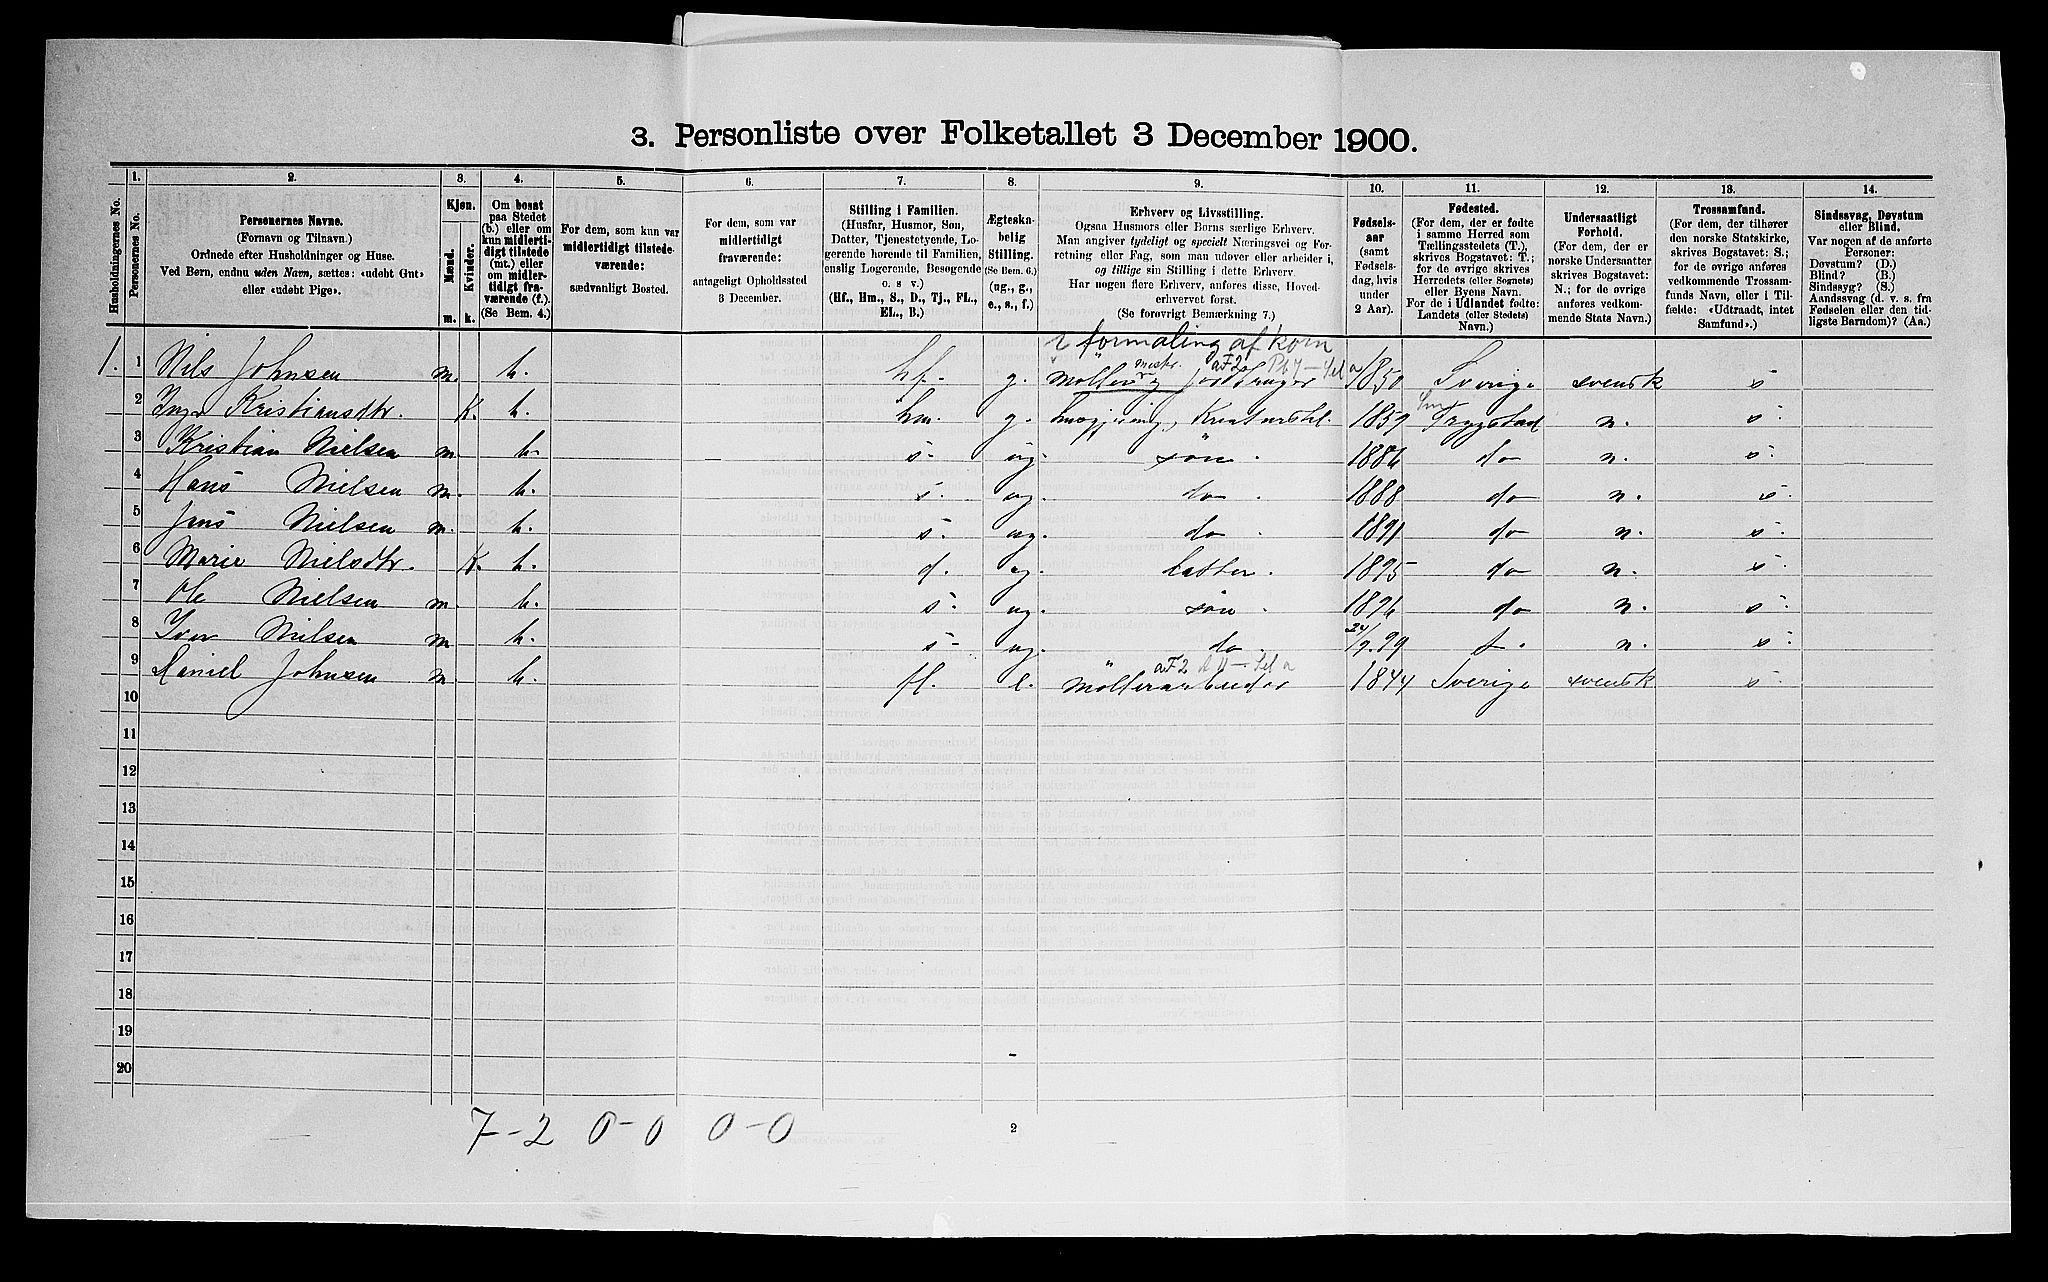 3. Personliste over Folketallet 3 December 1900.
Husholdningernes No.
1.
Personernes No.
2.
Personernes Navne.
(Fornavn og Tilnavn.)
Ordnede efter Husholdninger og Huse.
Ved Børn, endnu uden Navn, sættes: «udøbt Gut»
eller «udøbt Pige».
3.
Kjøn.
Mænd.
Kvinder.
m. k.
4.
Om bosat
paa Stedet
(b.) eller om
kun midlerti-
digt tilstede
(mt.) eller
om midler-
tidigt fra-
værende (f.).
(Se Bem. 4.)
5.
For dem, som kun var
midlertidigt tilstede-
værende:
sædvanligt Bosted.
6.
For dem, som var
midlertidigt
fraværende:
antageligt Opholdssted
3 December.
7.
Stilling i Familien.
(Husfar, Husmor, Søn,
Datter, Tjenestetyende, Lo-
gerende hørende til Familien,
enslig Logerende, Besøgende
o. s v.)
(Hf., Hm., S., D., Tj., FL.,
EL., B.)
8.
Ægteska-
belig
Stilling.
(Se Bem. 6.)
(ug., g.,
e., s., f.)
9.
Erhverv og Livsstilling.
Ogsaa Husmors eller Børns særlige Erhverv.
Man angiver tydeligt og specielt Næringsvei og For-
retning eller Fag, som man udøver eller arbeider i,
og tillige sin Stilling i dette Erhverv.
Har nogen flere Erhverv, anføres disse, Hoved-
erhvervet først.
(Se forøvrigt Bemærkning 7.)
10.
Fødsels-
aar
(samt
Fødsels-
dag, hvis
under
2 Aar).
11.
Fødested.
(For dem, der er fødte
i samme Herred som
Tællingsstedets (T.),
skrives Bogstavet: T.;
for de øvrige skrives
Herredets (eller Sognets)
eller Byens Navn.
For de i Udlandet fødte:
Landets (eller Stedets)
Navn.)
12.
Undersaatligt
Forhold.
(For dem, der er
norske Undersaatter
skrives Bogstavet:
N.; for de øvrige
anføres vedkom-
mende Stats Navn.)
13.
Trossamfund.
(For dem, der tilhører
den norske Statskirke,
skrives Bogstavet: S.;
for de øvrige anføres
vedkommende Trossam-
funds Navn, eller i Til-
fælde: «Udtraadt, intet
Samfund».)
14.
Sindssvag, Døvstum
eller Blind.
Var nogen af de anførte
Personer:
Døvstum? (D.)
Blind? (B.)
Sindssyg? (S.)
Aandssvag (d. v. s. fra
Fødselen eller den tid-
ligste Barndom)? (Aa.)
formaling af korn
1. 1 Nils Johnsen m. b. hf. g. Møller og jordbruger 1850 Sverige svensk s
2 Kristiansdtr. K. b. hm. g. 1859 Trygstad n. s
3 Kristian Nielsen m. b. s. ug. søn 1886 do n. s.
4 Hans Nielsen m. b. s. ug. do 1888 do n. s.
5 Jens Nielsen m. b. s. ug. do 1891 do n. s.
6 Marie Nielsdtr. K. b. d. ug. datter. 1895 do n. s.
7 Ole Nielsen m. b. s. ug. søn 1896 do n. s.
8 Iver Nielsen m. b. s. ug. do 24/9.99 n. s.
9 Daniel Johnsen m. b. fl. e. Møllerarbeider 1844 Sverige svensk s.
10
11
12
13
14
15
16
17
18
19
20
7-2 0-0 0-0
2